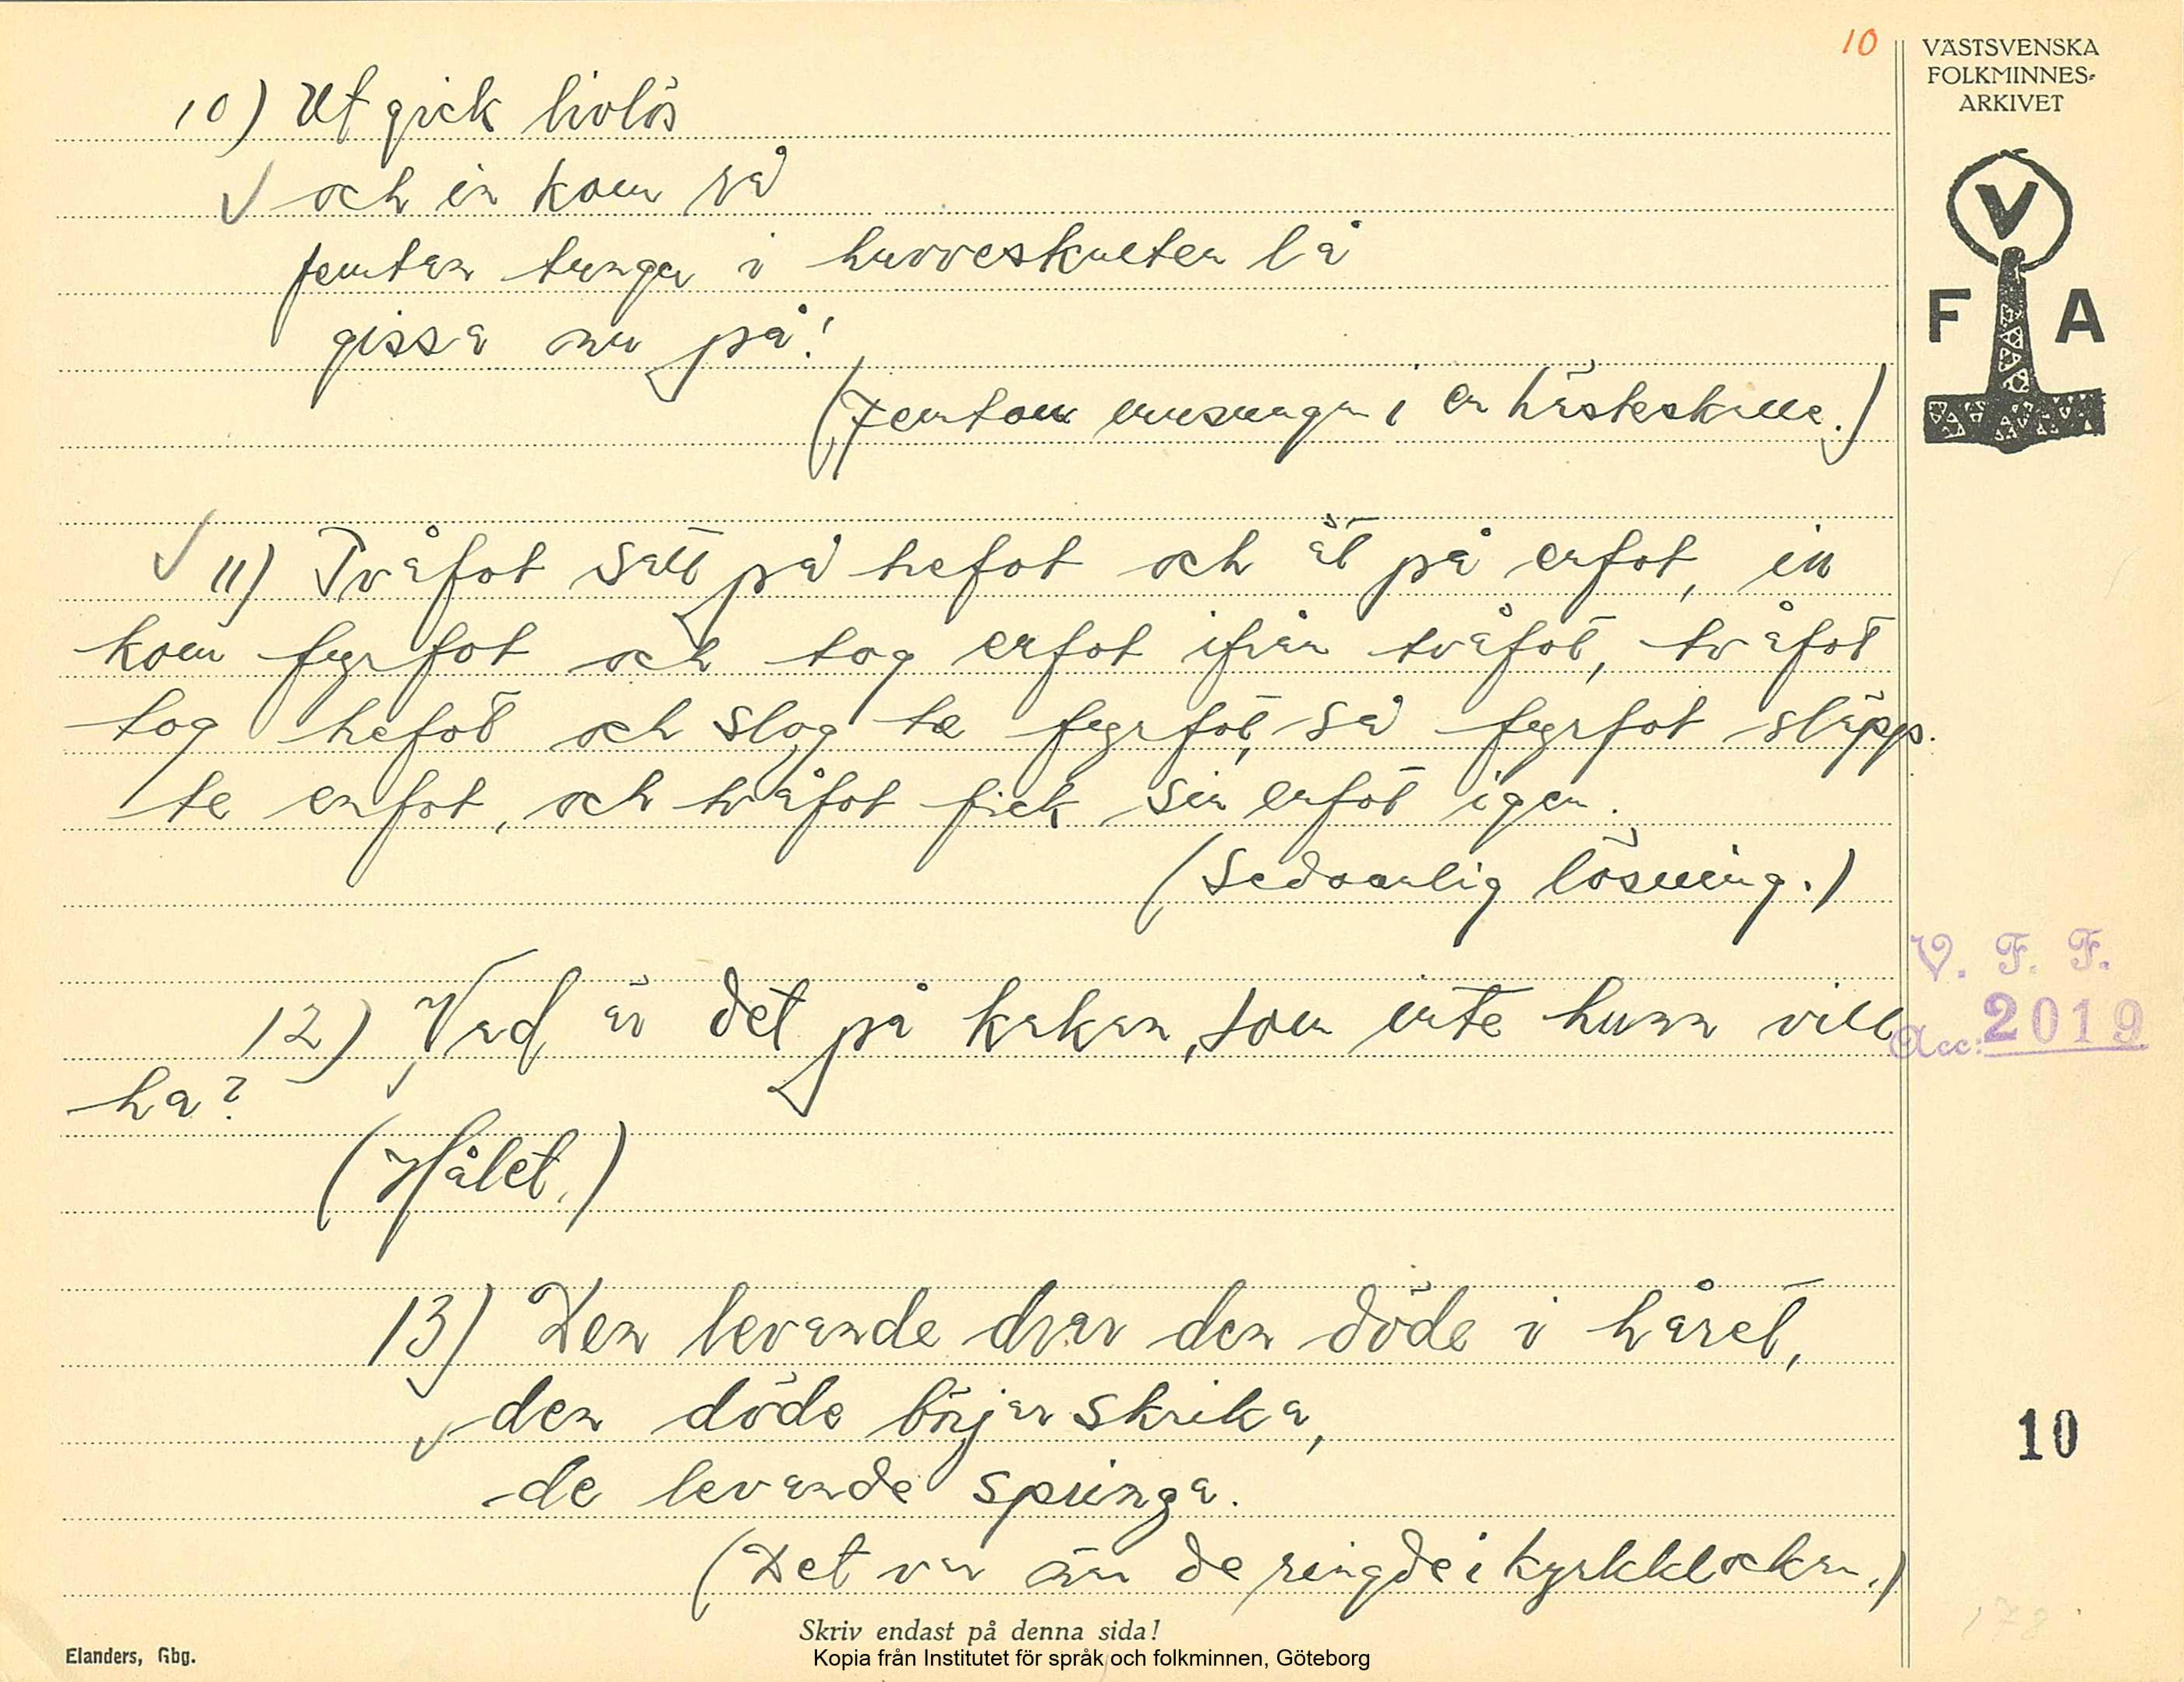 10
VÄSTSVENSKA
FOLKMINNES-
ARKIVET
V
F A
10) Ut gick livlös
och in kom så
femtan tunga i huvveskulten lå
gissa nu på!
(Femton musunga i en hästeskalle.)
11) Tvåfot satt på trefot och åt på enfot, in
kom fyrfot och tog enfot ifrån tvåfot, tvåfot
tog trefot och slog te fyrfot, så fyrfot släpp-
te enfot, och tvåfot fick sin enfot igen.
(Sedvanlig lösning.)
V. F. F.
Acc: 2019
12) Vad är det på kakan, som inte hunn vill
ha?
(Hålet.)
13) Den levande drar den döde i håret,
den döde börjar skrika,
de levande springa.
10
(Det var när de ringde i kyrkklockan.)
178
Skriv endast på denna sida!
Elanders, Gbg.
Kopia från Institutet för språk och folkminnen, Göteborg